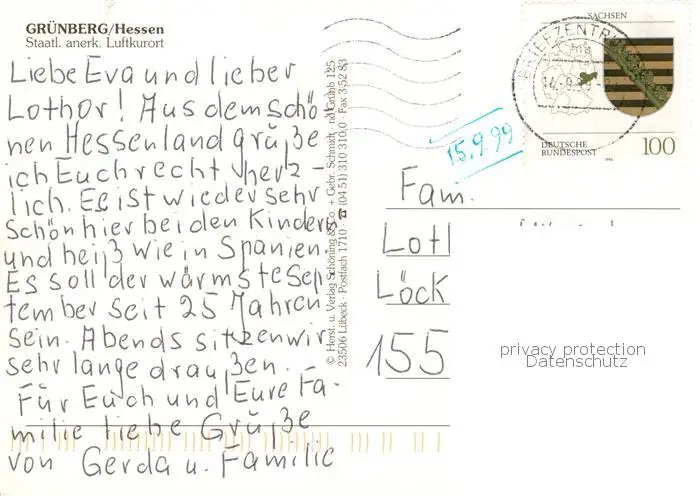 GRÜNBERG/Hessen
Staatl. anerk. Luftkurort
Liebe Eva und lieber
Lothar! Aus dem schö-
nen Hessenland grüße
ich Euch recht herz-
lich. Es ist wieder sehr
schön hier bei den Kindern
und heiß wie in Spanien.
Es soll der wärmste Sep-
tember seit 25 Jahren
sein. Abends sitzen wir
sehr lange draußen.
Für Euch und Eure Fa-
milie liebe Grüße
von Gerda u. Familie
© Herst. u. Verlag Schöning & Co. + Gebr. Schmidt, nd Grünb 125
23506 Lübeck · Postfach 1710 · ☎ (04 51) 310 310,0 · Fax 3 52 83
SACHSEN
BRIEFZENTRUM
DEUTSCHE
BUNDESPOST
1994
100
15.9.99
Fam.
Lotl
Löck
155
privacy protection
Datenschutz